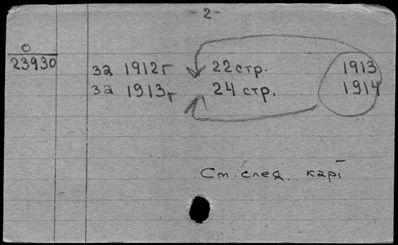 - 2 -
О
23930
за 1912г 22 стр. 1913
за 1913г 24 стр. 1914
См. след. карт